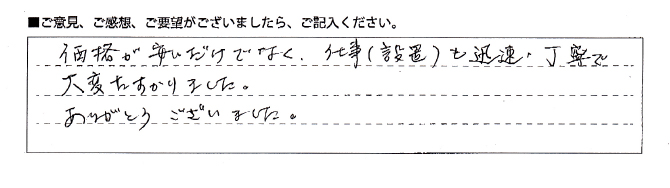 ■ご意見、ご感想、ご要望がございましたら、ご記入ください。
価格が安いだけでなく、仕事(設置)も迅速・丁寧で
大変たすかりました。
ありがとうございました。